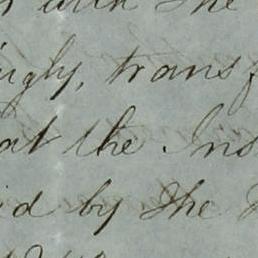 with the
ingly, trans
at the Ins
id by the